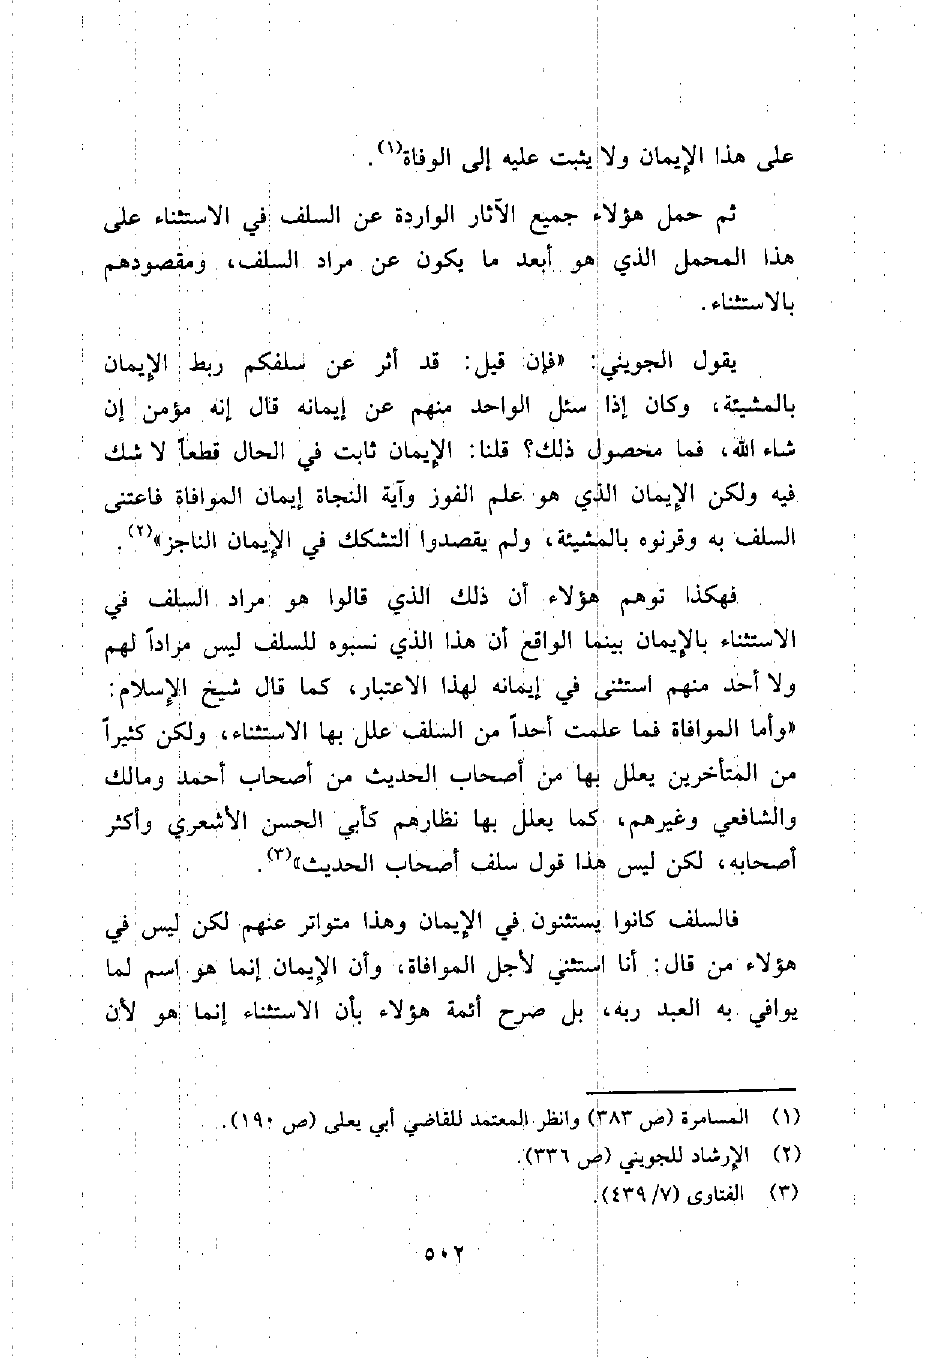 على هذا الإيمان ولا يثبت عليه إلى الوفاة(١).
ثم حمل هؤلاء جميع الآثار الواردة عن السلف في الاستثناء على
هذا المحمل الذي هو أبعد ما يكون عن مراد السلف، ومقصودهم
بالاستثناء.
يقول الجويني: «فإن قيل: قد أثر عن سلفكم ربط الإيمان
بالمشيئة، وكان إذا سئل الواحد منهم عن إيمانه قال إنه مؤمن إن
شاء الله، فما محصول ذلك؟ قلنا: الإيمان ثابت في الحال قطعاً لا شك
فيه ولكن الإيمان الذي هو علم الفوز وآية النجاة إيمان الموافاة فاعتنى
السلف به وقرنوه بالمشيئة، ولم يقصدوا التشكك في الإيمان الناجز»(٢).
فهكذا توهم هؤلاء أن ذلك الذي قالوا هو مراد السلف في
الاستثناء بالإيمان بينما الواقع أن هذا الذي نسبوه للسلف ليس مراداً لهم
ولا أحد منهم استثنى في إيمانه لهذا الاعتبار، كما قال شيخ الإسلام:
«وأما الموافاة فما علمت أحداً من السلف علل بها الاستثناء، ولكن كثيراً
من المتأخرين يعلل بها من أصحاب الحديث من أصحاب أحمد ومالك
والشافعي وغيرهم، كما يعلل بها نظارهم كأبي الحسن الأشعري وأكثر
أصحابه، لكن ليس هذا قول سلف أصحاب الحديث»(٣).
فالسلف كانوا يستثنون في الإيمان وهذا متواتر عنهم لكن ليس في
هؤلاء من قال: أنا استثني لأجل الموافاة، وأن الإيمان إنما هو اسم لما
يوافي به العبد ربه، بل صرح أئمة هؤلاء بأن الاستثناء إنما هو لأن
(١) المسامرة (ص ٣٨٣) وانظر المعتمد للقاضي أبي يعلى (ص ١٩٠).
(٢) الإرشاد للجويني (ص ٣٣٦).
(٣) الفتاوى (٧/ ٤٣٩).
٥٠٢